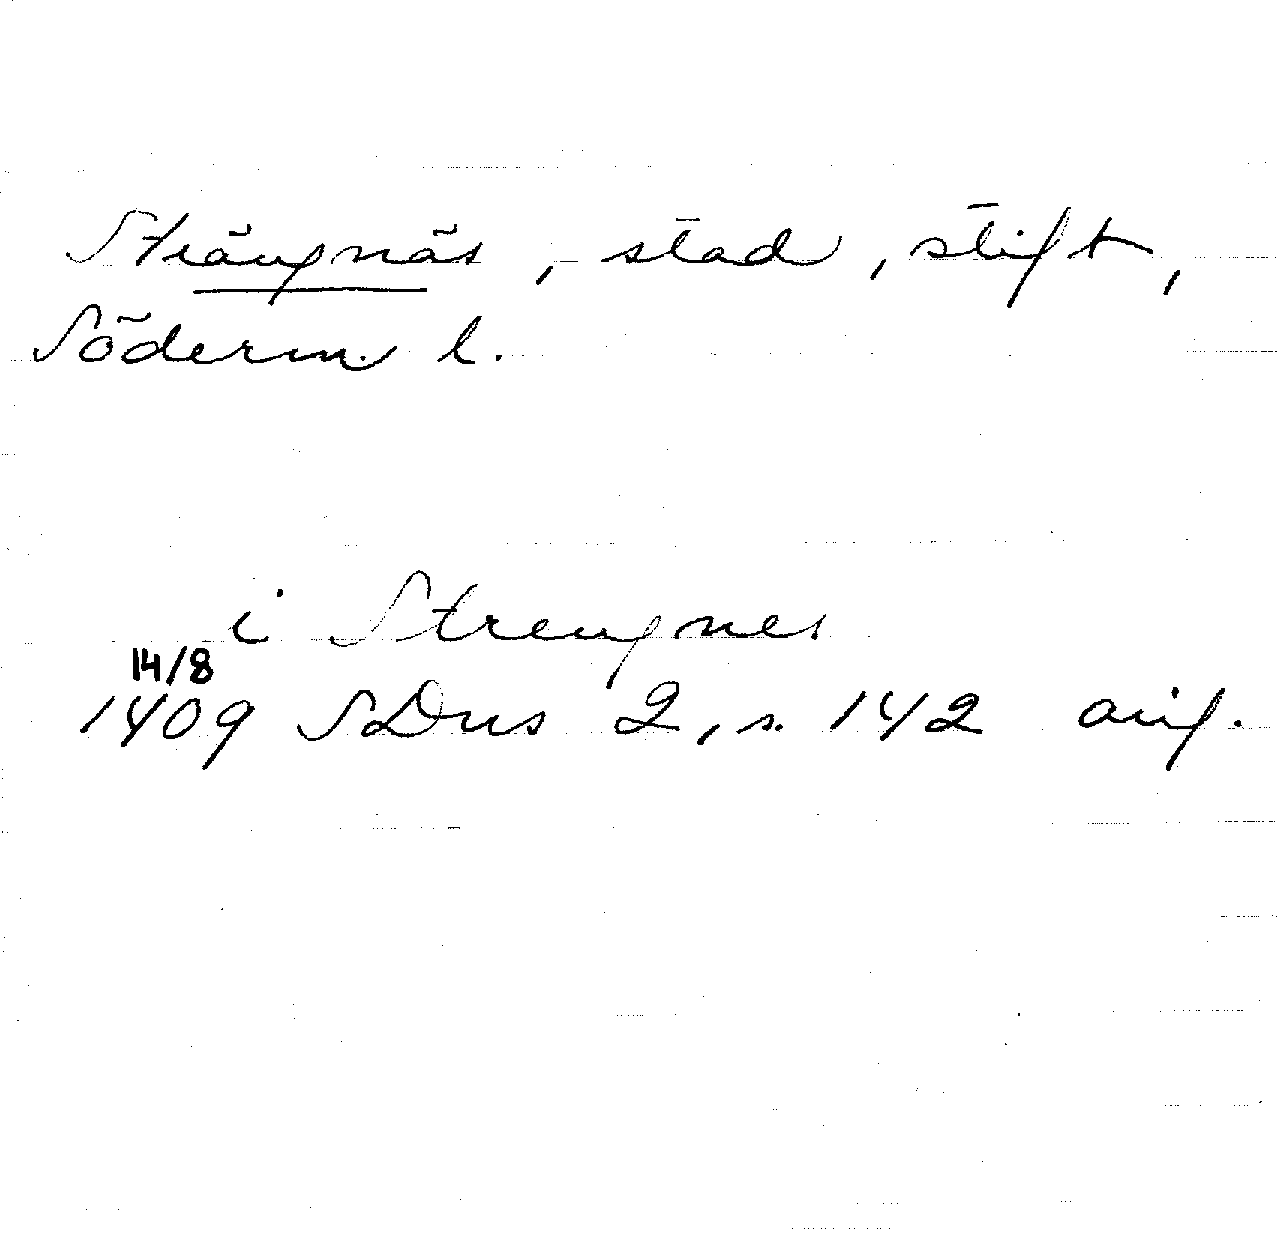 Strängnäs, stad, stift,
Söderm. l.
i Strengnes
14/8
1409 SDns 2, s. 142 avs.